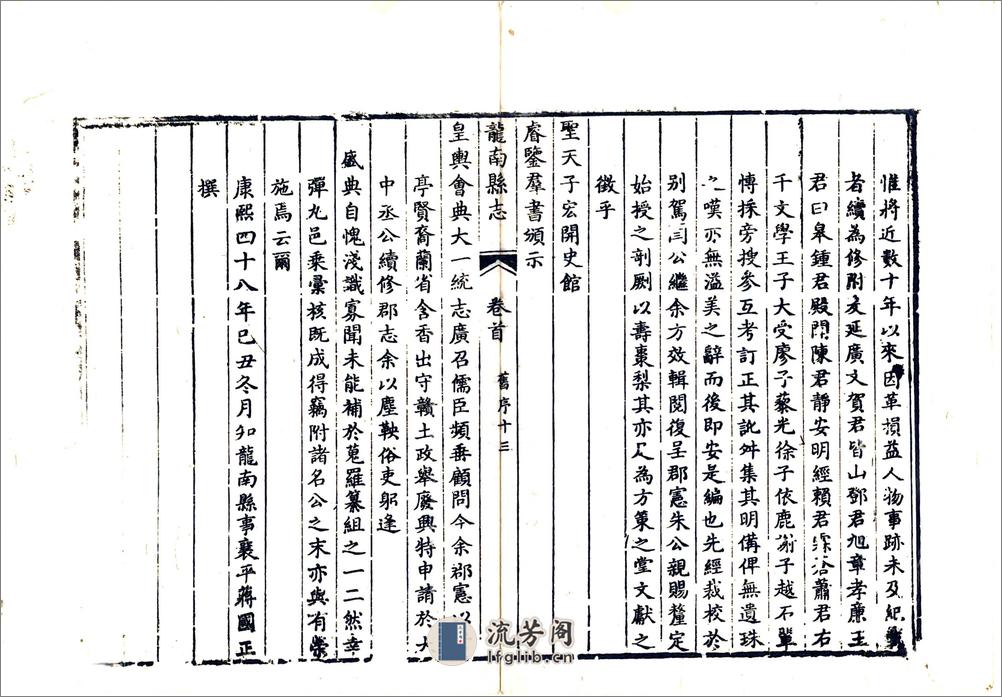 惟將近數十年以來因革損益人物事跡未及紀載
者續為修附爰延廣文賀君皆山鄧君旭章孝廉王
君曰皋鍾君殿閂陳君靜安明經賴君洽蕭君右
千文學王子大受廖子藜光徐子依鹿謝子越石單
愽採旁搜參互考訂正其訛舛集其明備俾無遺珠
之嘆亦無溢美之辭而後即安是編也先經裁校於
别駕閆公繼余方效輯閱復呈郡憲朱公親賜釐定
始授之剞劂以壽棗梨其亦足為方策之堂文獻之
徵乎
聖天子宏開史館
睿鑒羣書頒示
龍南縣志 卷首 舊序十三
皇輿會典大一統志廣召儒臣頻垂顧問今余郡憲以
亭賢裔蘭省含香出守贛土政舉廢興特申請於大
中丞公續修郡志余以塵鞅俗吏躬逢
盛典自愧淺識寡聞未能補於蒐羅纂組之一二然幸
彈丸邑乘彙核既成得竊附諸名公之末亦與有榮
施焉云爾
康熙四十八年已丑冬月知龍南縣事襄平蔣國正
撰
流芳阁
lfglib.cn